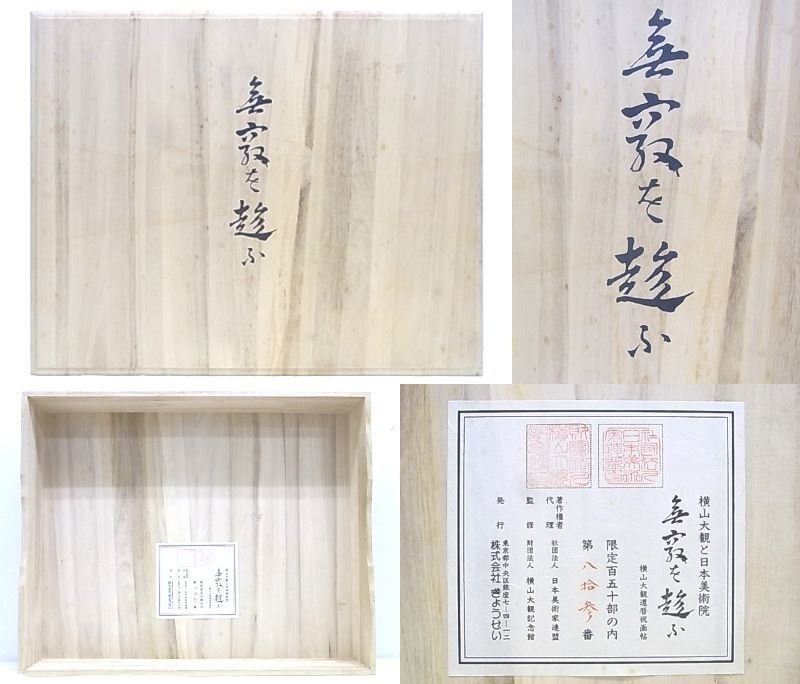 無窮を趁ふ
無窮を趁ふ
横山大観と日本美術院
無窮を趁ふ
横山大観還暦祝画帖
限定百五十部の内
第八拾参番
著作権者
代理 社団法人 日本美術家連盟
監修 財団法人 横山大観記念館
発行 東京都中央区銀座七-四-一二
株式会社ぎょうせい
無窮を趁ふ